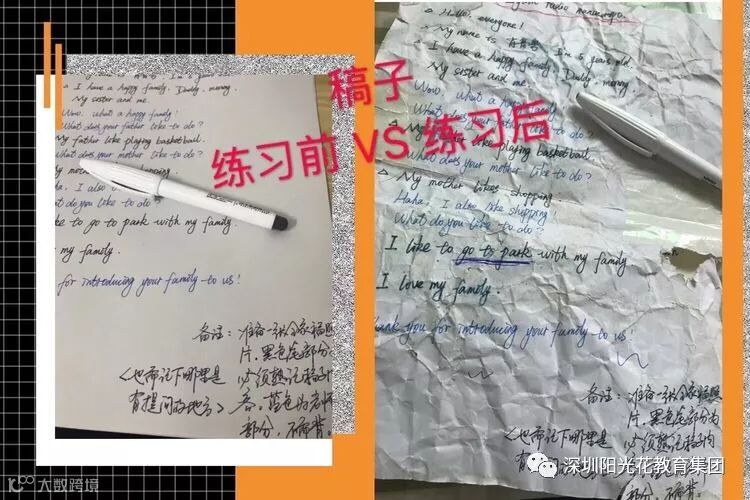 稿子
练习前 VS 练习后
I have a happy family. Daddy, mommy,
My sister and me.
Wow, what a happy family!
What does your father like to do?
My father like playing basketball.
What does your mother like to do?
Haha, I also
do you like to do?
ke to go to park with my family.
my family.
for introducing your family to us!
备注：准备一张全家福照
片，黑色笔部分
必须熟记
蓝色为老师
部分，不需背。
<也需记下哪里是
有提问的地方>
Hello, everyone!
My name is I'm 5 years old.
I have a happy family. Daddy, mommy,
My sister and me.
Wow, what a happy family!
What does your father like to do?
My father like playing basketball.
What does your mother like to do?
My mother likes shopping.
Haha, I also like shopping
What do you like to do?
I like to go to park with my family
I love my family.
hank you for introducing your family to us!
备注：准备一张全家福照
片，黑色笔部分为
必须熟记
<也需记下哪里是
部分，不需背！
深圳阳光花教育集团
大数跨境